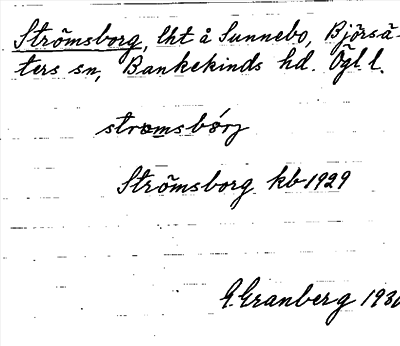 Strömsborg, lht å Sunnebo, Björsä-
ters sn, Bankekinds hd. Ögl l.
strömsbórj
Strömsborg kb 1929
G. Granberg 193